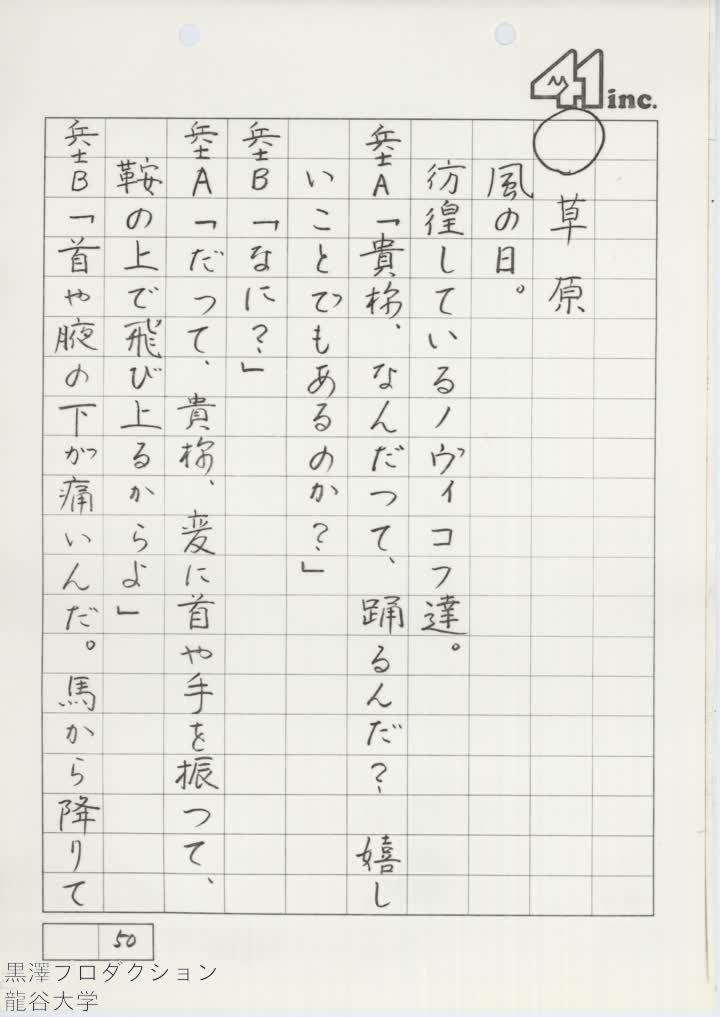 41 inc.
○ 草原
風の日。
彷徨しているノヴィコフ達。
兵士A「貴様、なんだって、踊るんだ？　嬉し
いことでもあるのか？」
兵士B「なに？」
兵士A「だって、貴様、変に首や手を振つて、
鞍の上で飛び上るからよ」
兵士B「首や腋の下が痛いんだ。馬から降りて
50
黒澤プロダクション
龍谷大学